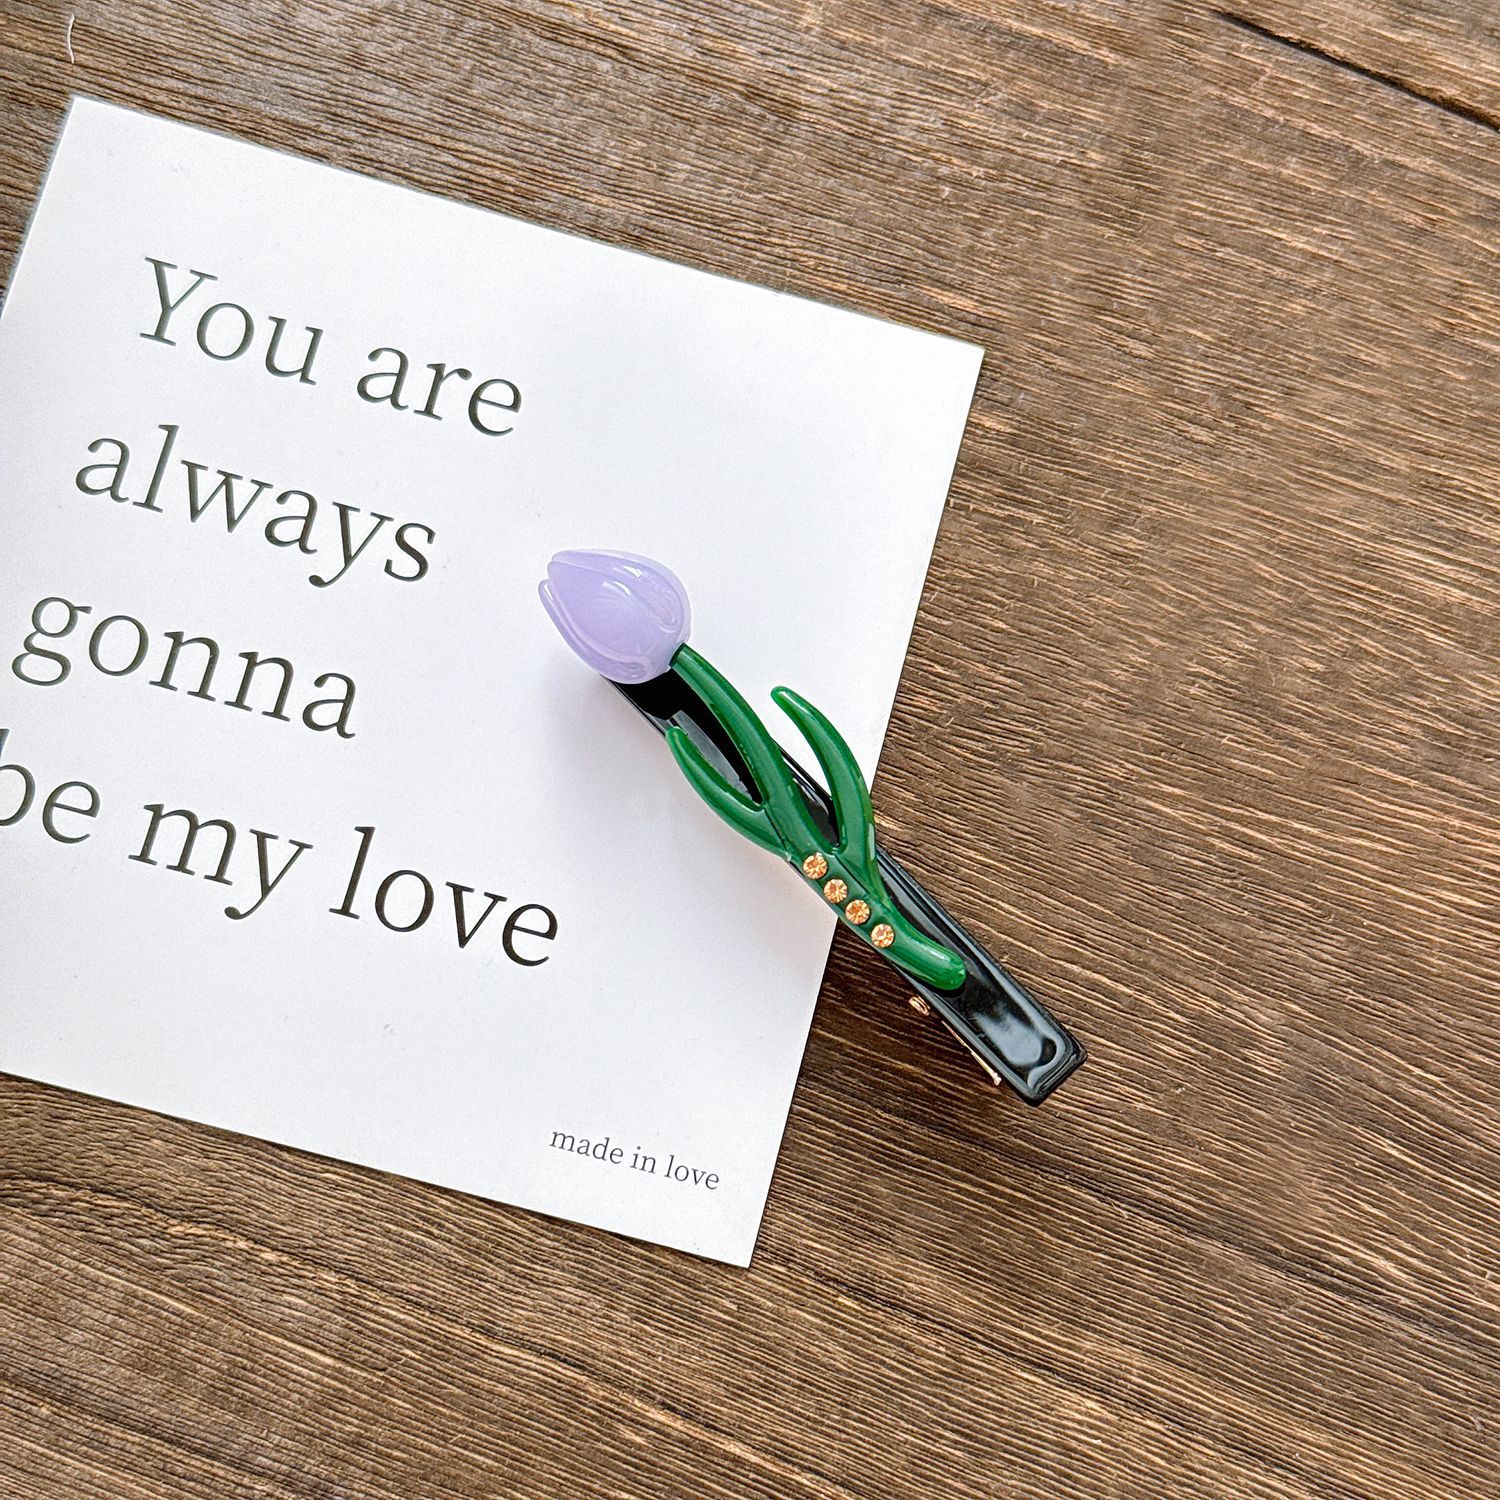 You are
always
gonna
be my love
made in love